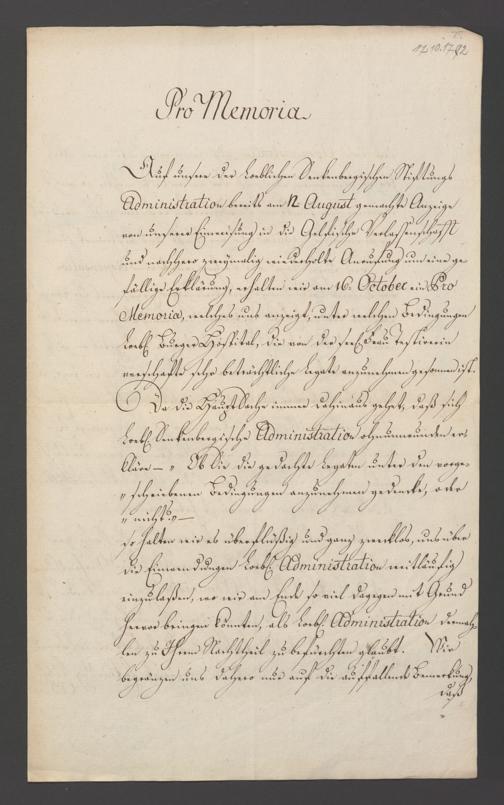 17.10.1792
Pro Memoria
Auf unsere der Loeblichen Senkenbergischen Stiftungs
Administration bereits am 12 August gemachte Anzeige
von unserer Einweisung in die Verlassenschaft
und nachhero zweymalig wiederholte Ansuchung um eine ge-
fällige Erklärung, erhalten wir am 16. October ein Pro
Memoria, welches uns anzeigt, unter welchen Bedingungen
Loebl. Bürger Hospital, die von der seel. Frau Testirerin
verschafte sehr beträchtliche Legate anzunehmen gesonnen ist.
Da die Haupt Sache immer dahinaus gehet, daß sich
Loebl. Senkenbergische Administration ohnumwunden er-
kläre — „ Ob Sie die gedachte Legaten unter den vorge-
„ schriebenen Bedingungen anzunehmen gedencke, oder
„ nicht? „ —
so halten wir es überflüßig und ganz zwecklos, uns über
die Einwendungen Loebl. Administration weitläufig
einzulaßen, wo wir am Ende so viel dagegen mit Grund
hervor bringen könnten, als Loebl. Administration dermah-
len zu Ihrem Nachtheil zu befürchten glaubt. Wir
begränzen uns dahero nur auf die auffallende Bemerkung,
daß